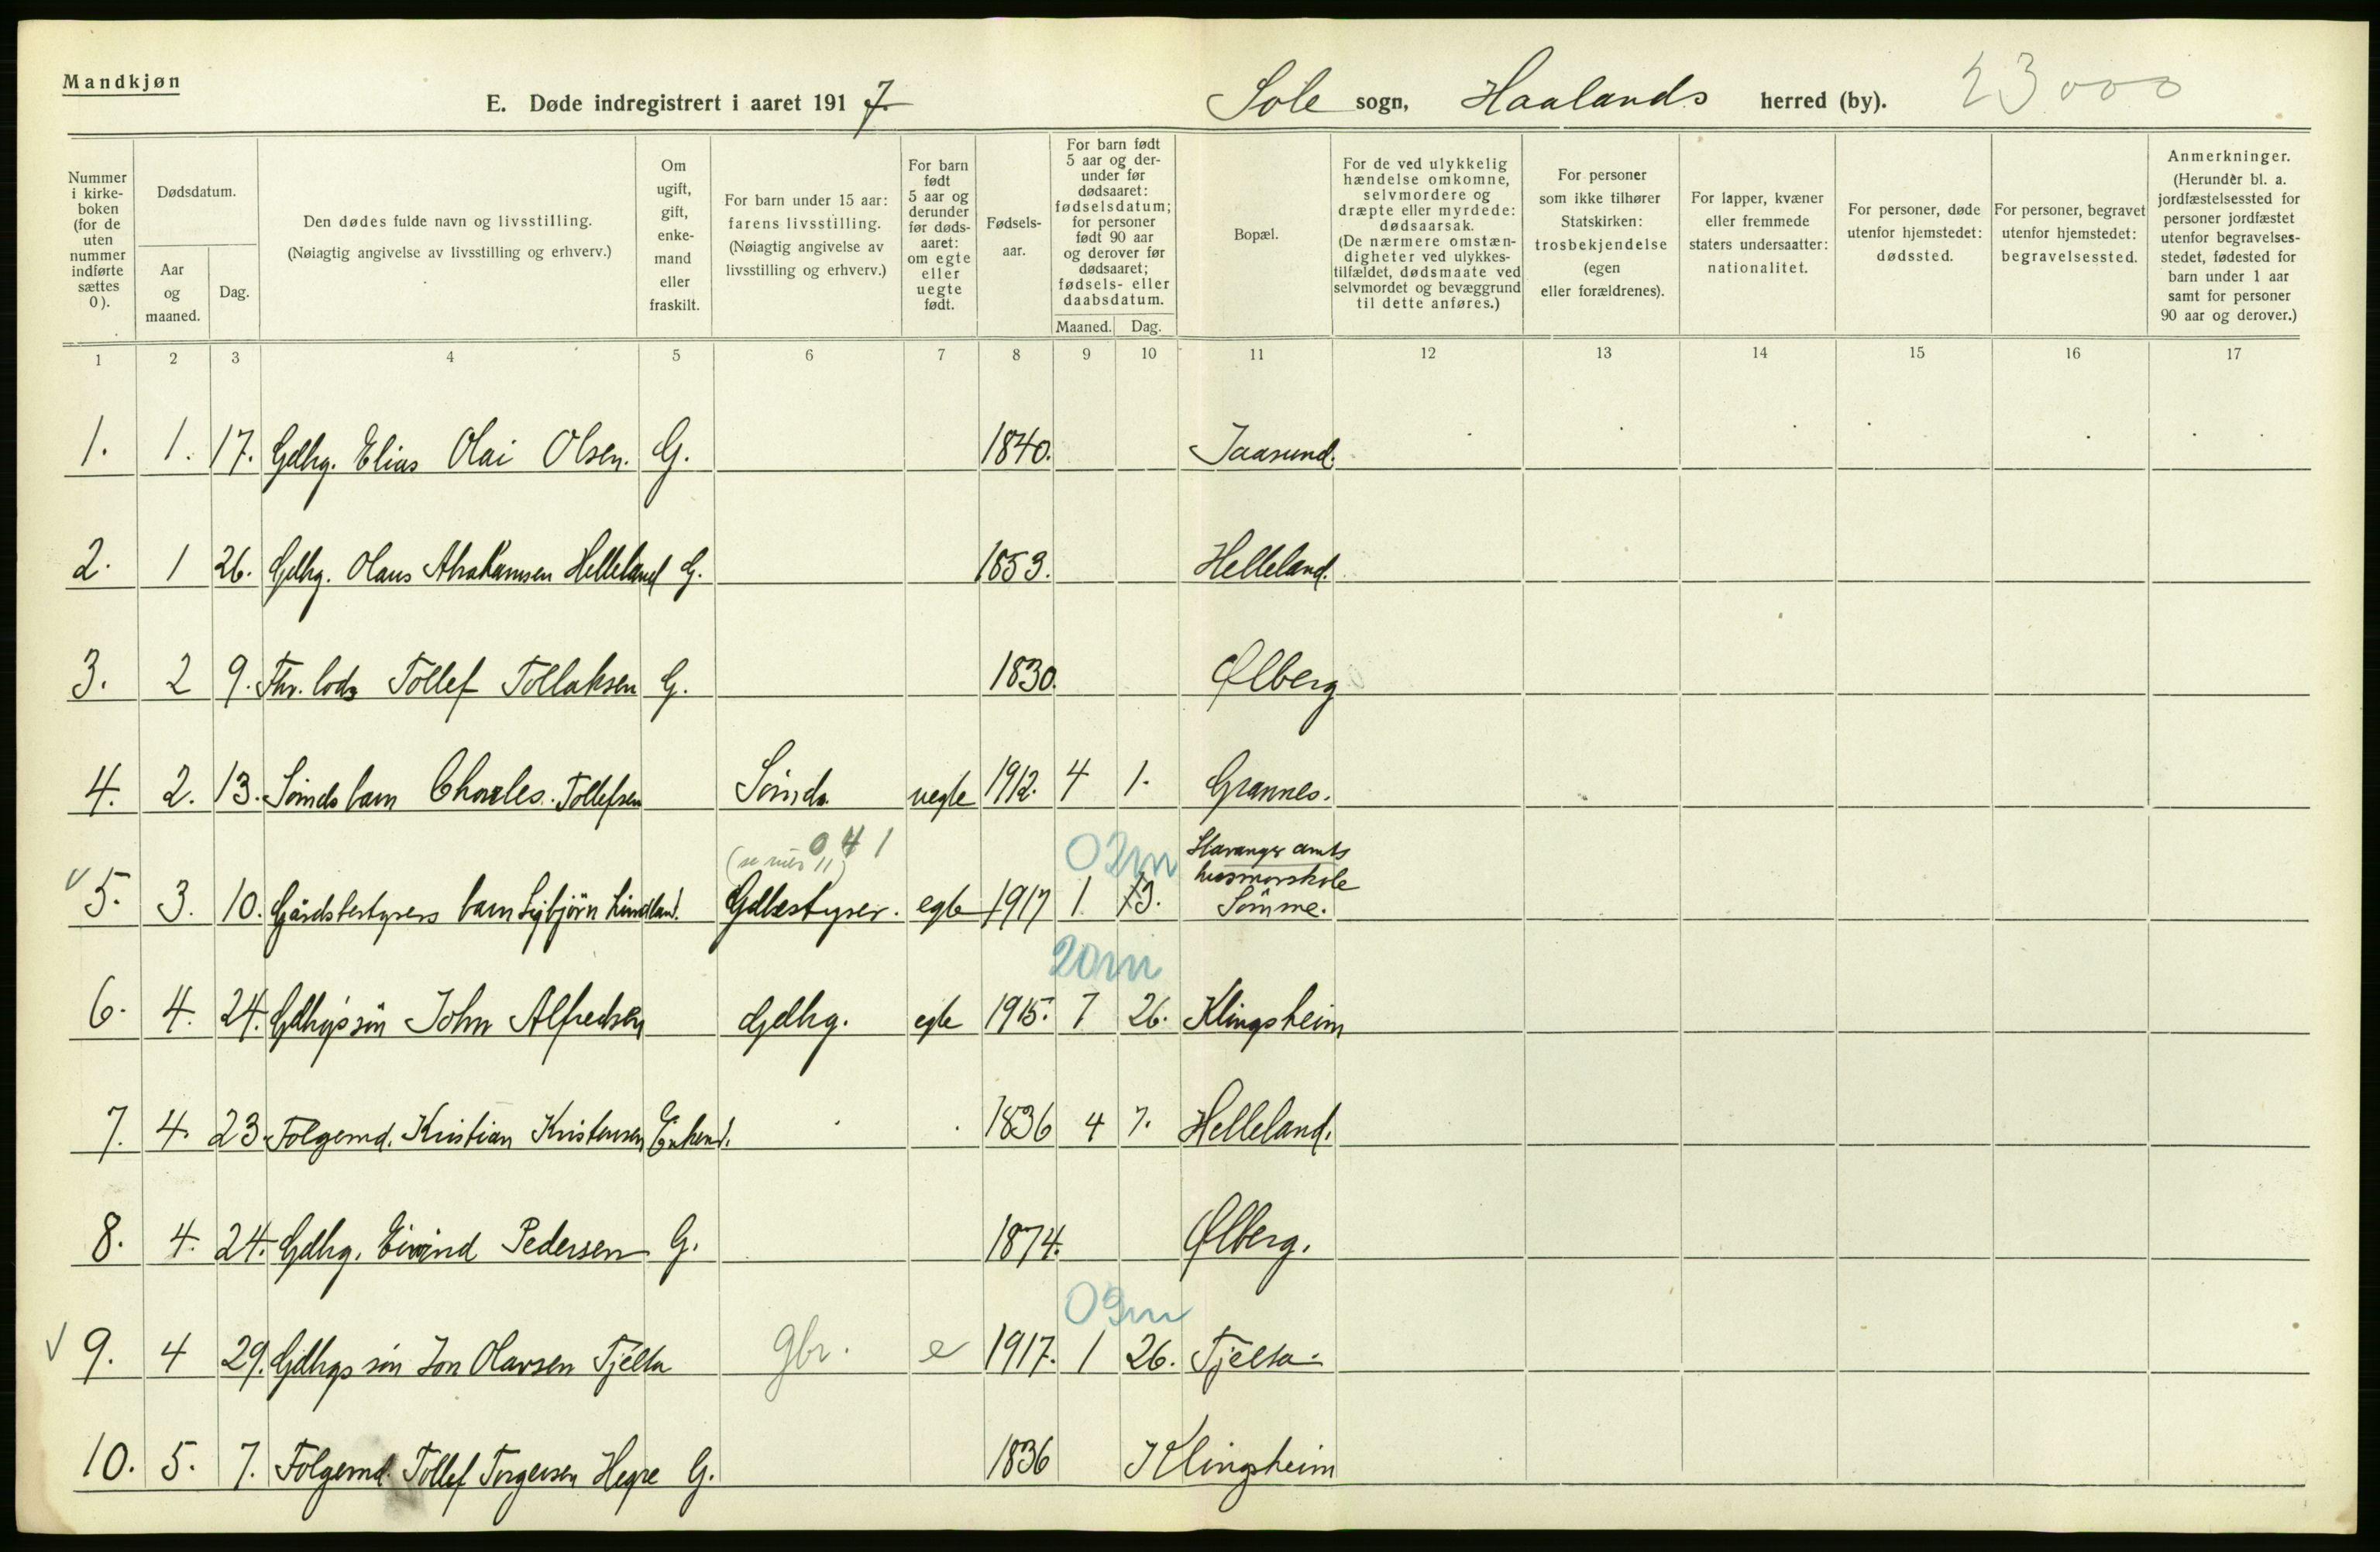 Mandkjøn
E. Døde indregistrert i aaret 1917. Sole sogn, Haalands herred (by). 23000
Nummer i kirke-boken (for de uten nummer indførte sættes 0).
Dødsdatum.
Aar og maaned.
Dag.
Den dødes fulde navn og livsstilling.
(Nøiagtig angivelse av livsstilling og erhverv.)
Om ugift, gift, enke-mand eller fraskilt.
For barn under 15 aar: farens livsstilling.
(Nøiagtig angivelse av livsstilling og erhverv.)
For barn født 5 aar og derunder før døds-aaret: om egte eller uegte født.
Fødsels-aar.
For barn født 5 aar og der-under før dødsaaret: fødselsdatum; for personer født 90 aar og derover før dødsaaret; fødsels- eller daabsdatum.
Maaned. Dag.
Bopæl.
For de ved ulykkelig hændelse omkomne, selvmordere og dræpte eller myrdede: dødsaarsak.
(De nærmere omstæn-digheter ved ulykkes-tilfældet, dødsmaate ved selvmordet og bevæggrund til dette anføres.)
For personer som ikke tilhører Statskirken: trosbekjendelse (egen eller forældrenes).
For lapper, kvæner eller fremmede staters undersaatter: nationalitet.
For personer, døde utenfor hjemstedet: dødssted.
For personer, begravet utenfor hjemstedet: begravelsessted.
Anmerkninger.
(Herunder bl. a. jordfæstelsessted for personer jordfæstet utenfor begravelses-stedet, fødested for barn under 1 aar samt for personer 90 aar og derover.)
1 2 3 4 5 6 7 8 9 10 11 12 13 14 15 16 17
1. 1. 17. Gdbg. Elias Olai Olsen. G. 1840. Jaasund.
2. 1 26. Gdbg. Olaus Abrahamsen Helleland G. 1853. Helleland.
3. 2 9. Fhv. lods Tollef Tollaksen G. 1830. Ølberg
4. 2. 13. Sömds barn Charles Tollefsen Sömd. uegte 1912. 4 1. Grannes.
041 02m Stavanger amts
5. 3. 10. Gårdsbestyrers barn Sigbjörn Lindland. Gdbestyrer. egte 1917 1 13. husmorskole
Sömme.
20m
6. 4. 24. Gdbg's sön John Alfredsen Gdbg. egte 1915. 7 26. Klingsheim
7. 4. 23 Folgemd. Kristian Kristensen Enkem. 1836 4 7. Helleland.
8. 4. 24. Gdbg. Eivind Pedersen G. 1874. Ølberg.
09m
9. 4 29. Gdbgs sön Jon Olavsen Tjelta gbr. e 1917. 1 26. Tjelta.
10. 5. 7. Folgemd. Tollef Torgersen Hegre G. 1836 Klingsheim